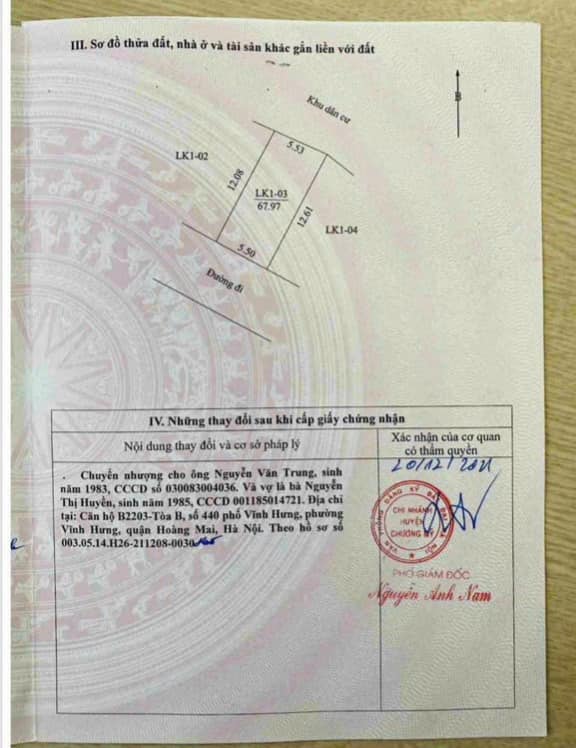 III. Sơ đồ thửa đất, nhà ở và tài sản khác gắn liền với đất
B
Khu dân cư
5.53
LK1-02
12.08
LK1-03
67.97
12.61
LK1-04
5.50
Đường đi
IV. Những thay đổi sau khi cấp giấy chứng nhận
Nội dung thay đổi và cơ sở pháp lý
Xác nhận của cơ quan
có thẩm quyền
Chuyển nhượng cho ông Nguyễn Văn Trung, sinh
năm 1983, CCCD số 030083004036. Và vợ là bà Nguyễn
Thị Huyền, sinh năm 1985, CCCD 001185014721. Địa chỉ
tại: Căn hộ B2203-Tòa B, số 440 phố Vĩnh Hưng, phường
Vĩnh Hưng, quận Hoàng Mai, Hà Nội. Theo hồ sơ số
003.05.14.H26-211208-0030
20/12/2021
VĂN PHÒNG ĐĂNG KÝ ĐẤT ĐAI HÀ NỘI
CHI NHÁNH
HUYỆN
CHƯƠNG MỸ
PHÓ GIÁM ĐỐC
Nguyễn Anh Nam